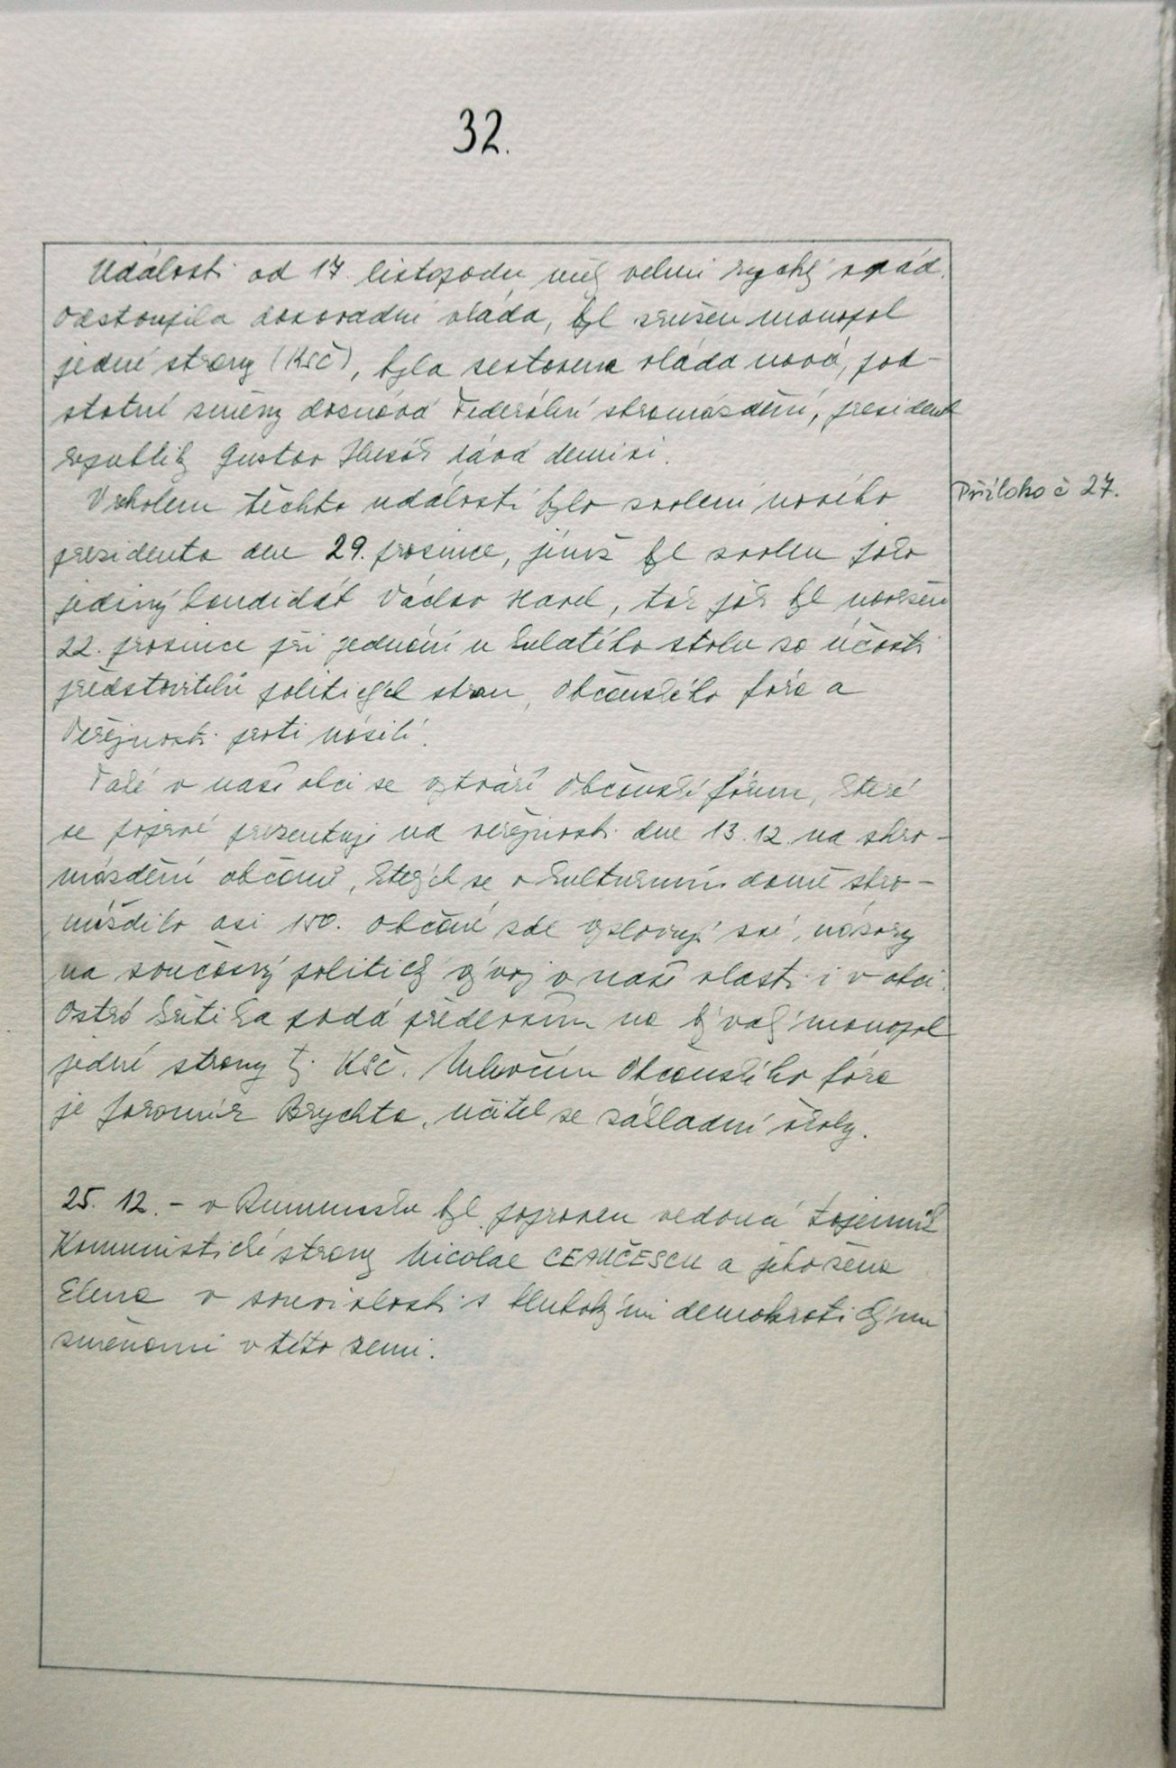 32.
Události od 17. listopadu měly velmi rychlý spád.
Odstoupila dosavadní vláda, byl zrušen monopol
jedné strany (KSČ), byla sestavena vláda nová, pod-
statné změny doznává Federální shromáždění, president
republiky Gustav Husák dává demisi.
Vrcholem těchto událostí bylo zvolení nového
Příloha č 27.
presidenta dne 29. prosince, jímž byl zvolen jako
jediný kandidát Václav Havel, tak jak byl navržen
22. prosince při jednání u kulatého stolu za účasti
představitelů politických stran, Občanského fóra a
Veřejnosti proti násilí.
Také v naší obci se vytváří Občanské fórum, které
se poprvé prezentuje na veřejnosti dne 13.12. na shro-
máždění občanů, kterých se v kulturním domě shro-
máždilo asi 150. Občané zde vyslovují své názory
na současný politický vývoj v naší vlasti i v obci.
Ostrá kritika padá především na bývalý monopol
jedné strany tj. KSČ. Mluvčím Občanského fóra
je Jaromír Brychta, učitel ze základní školy.
25. 12. - v Rumunsku byl popraven vedoucí tajemník
Komunistické strany Nicolae CEAUČESCU a jeho žena
Elena v souvislosti s hlubokými demokratickými
změnami v této zemi.